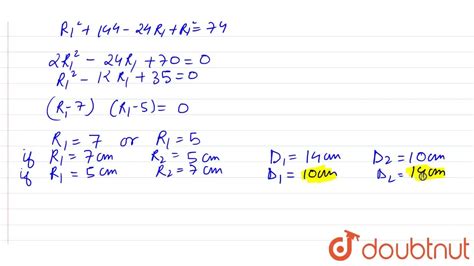 R₁² + 144 - 24R₁ + R₁² = 74
2R₁² - 24R₁ + 70 = 0
R₁² - 12R₁ + 35 = 0
(R₁-7) (R₁-5) = 0
R₁ = 7 or R₁ = 5
if R₁ = 7cm R₂ = 5cm D₁ = 14cm D₂ = 10cm
if R₁ = 5cm R₂ = 7cm D₁ = 10cm D₂ = 14cm
doubtnut